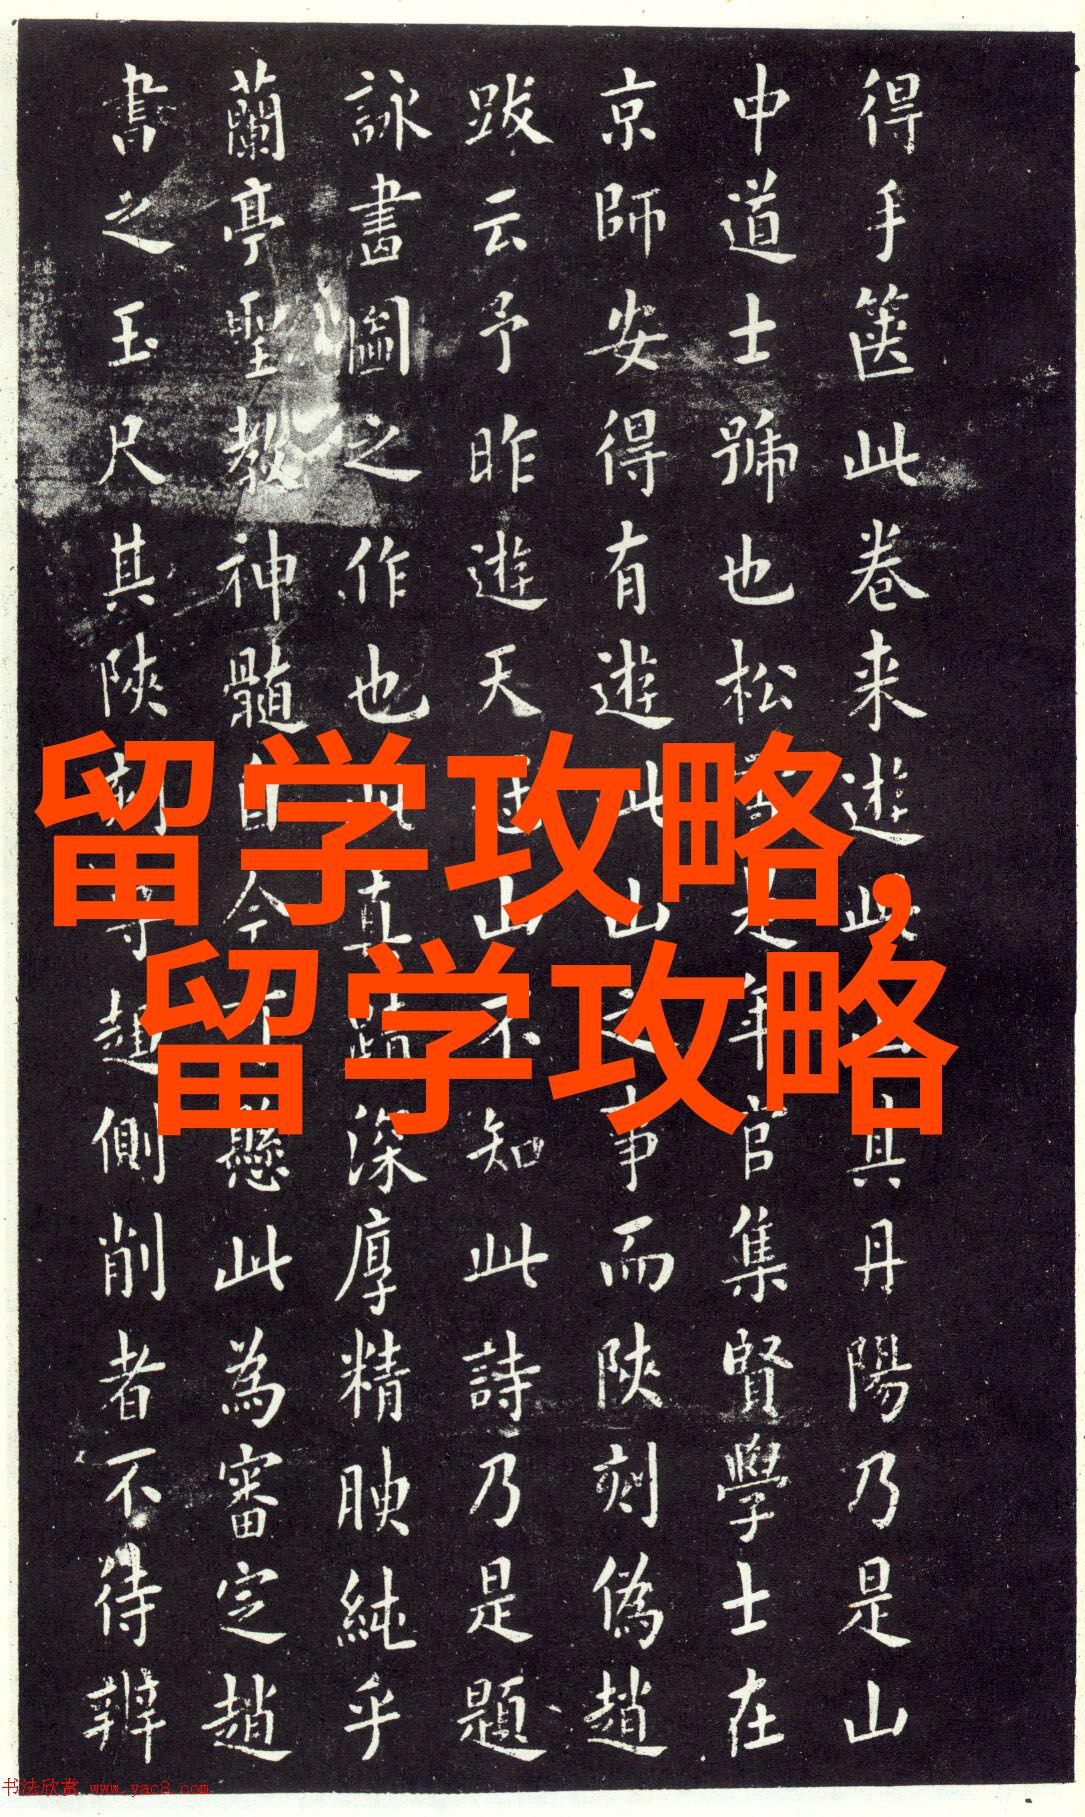 得手箧此卷来遊此其丹陽乃是山
中道士號也松是年官集賢學士在
京師安得有遊此山之事而陝刻偽趙
跋云予昨遊天冠山不知此詩乃是題
詠畫圖之作也此真蹟深厚精腴純乎
蘭亭聖教神髓自今可懸此為審定趙
書之玉尺其陝刻趄側削者不待辨
留学攻略,
留学攻略
书法欣赏 www.yac8.com